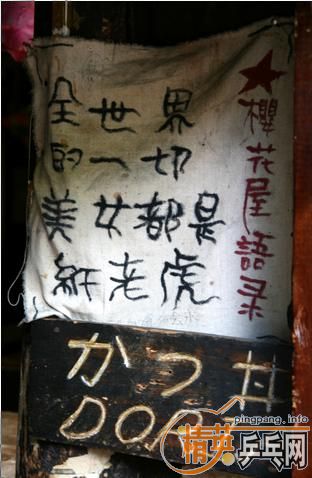 全世界
的一切
美女都是
紙老虎
★櫻花屋語录
かつ丼
DON
pingpang.info
精英乒乓网